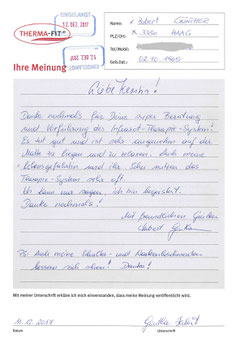 EINGELANGT
12. DEZ. 2017
THERMA-FIT®
Name:
Hubert GÜNTHER
PLZ/Ort:
3350 HAAG
Tel/Mobil:
Geb.Dat.:
02.10.1960
Ihre Meinung
Liebe Kerstin!
Danke nochmals für Deine super Beratung
und Vorführung des Infrarot-Therapie-Systems!
Es tut gut und ist sehr angenehm auf der
Matte zu liegen und zu relaxen. Auch meine
Lebensgefährtin und ihr Sohn nutzen das
Therapie-System sehr oft.
Ich kann nur sagen, ich bin begeistert.
Danke nochmals!
Mit freundlichen Grüßen
PS: Auch meine
lassen sich sehen! Danke!
Mit meiner Unterschrift erkläre ich mich einverstanden, dass meine Meinung veröffentlicht wird.
10.12.2017
Datum
Unterschrift